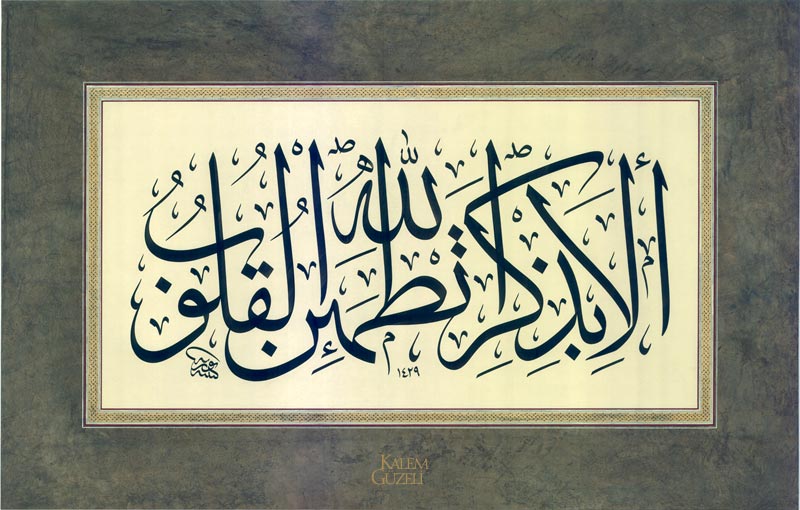 أَلَا بِذِكْرِ اللَّهِ تَطْمَئِنُّ الْقُلُوبُ
١٤٢٩
KALEM
GÜZELİ